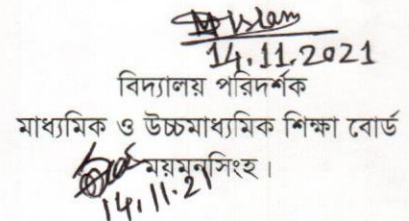 Islam
14.11.2021
বিদ্যালয় পরিদর্শক
মাধ্যমিক ও উচ্চমাধ্যমিক শিক্ষা বোর্ড
ময়মনসিংহ।
14.11.21